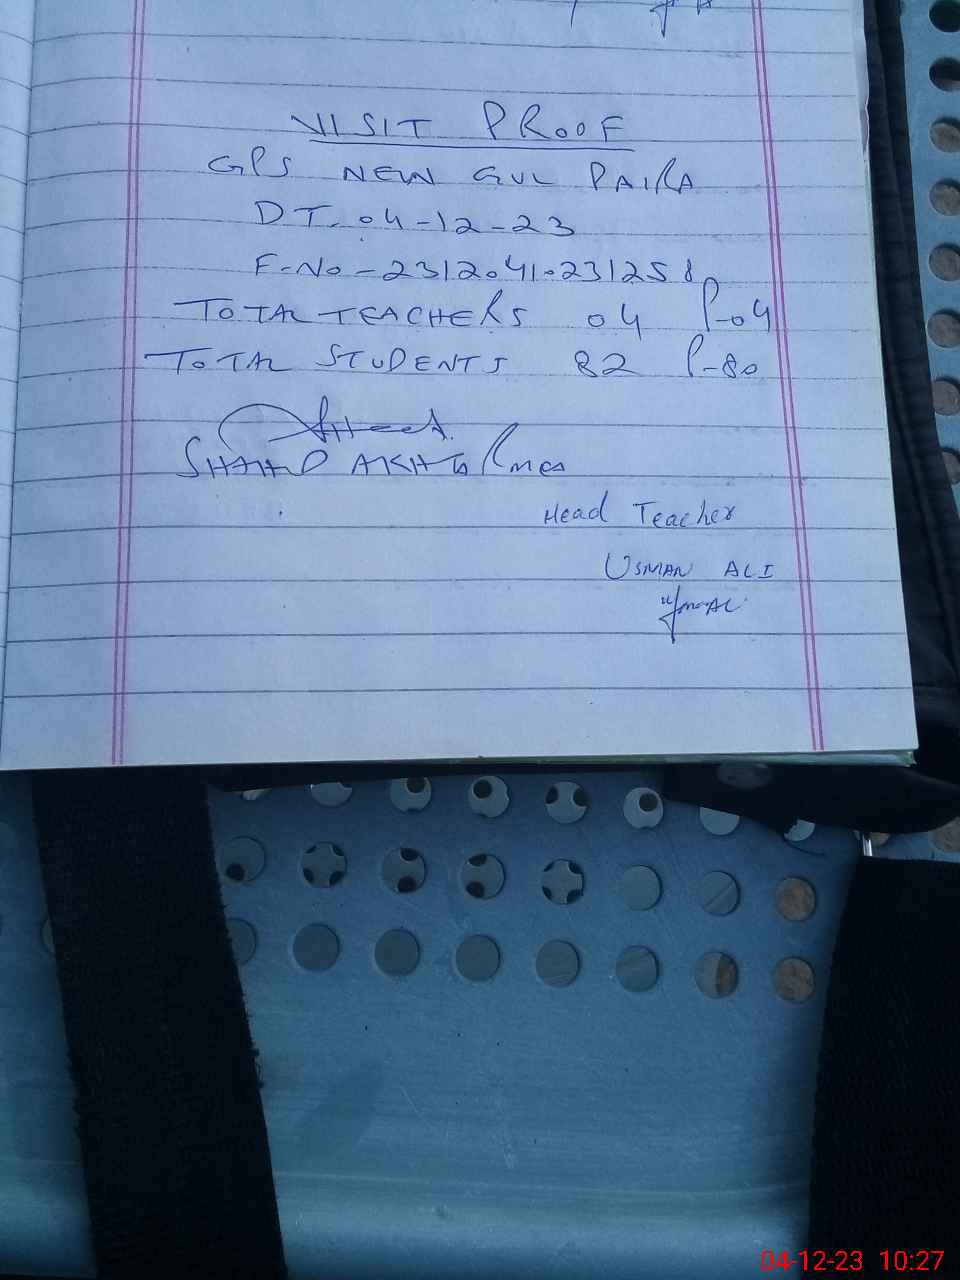 VISIT PROOF
GPS NEW GUL PAIRA
DT. 04-12-23
F-No-23120410231258
TOTAL TEACHERS 04 P-04
TOTAL STUDENTS 82 P-80
SHAHID AKHTAR
Head Teacher
USMAN ALI
04-12-23 10:27